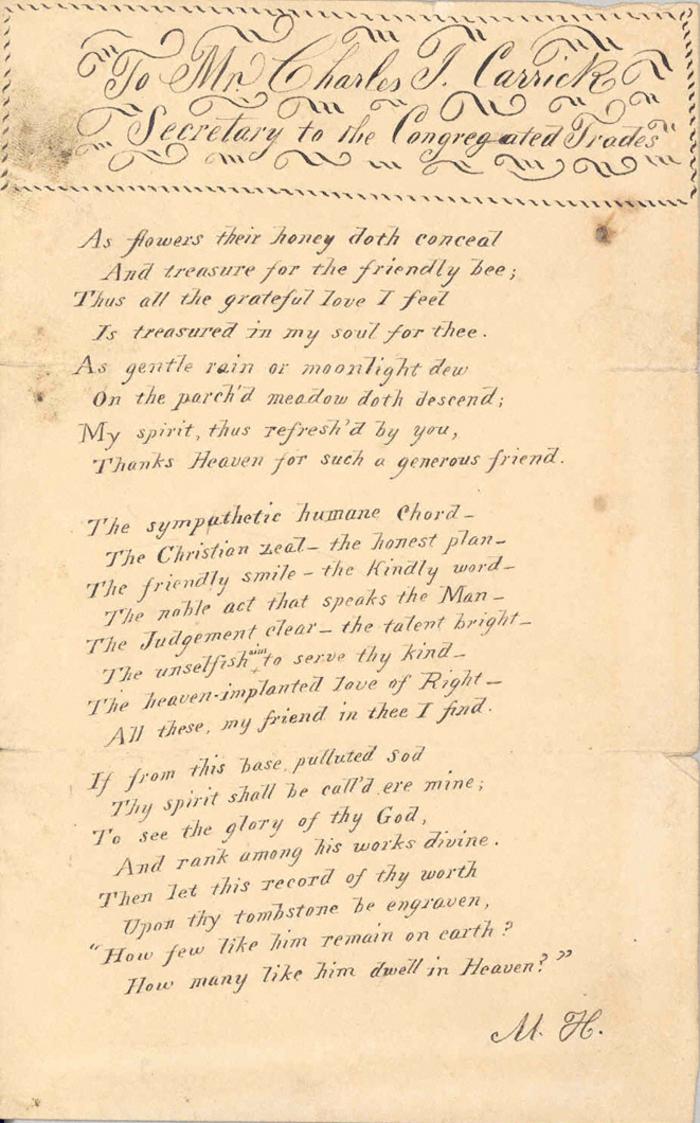 "To Mr. Charles J. Carrick
Secretary to the Congregated Trades"
As flowers their honey doth conceal
And treasure for the friendly bee;
Thus all the grateful love I feel
Is treasured in my soul for thee.
As gentle rain or moonlight dew
On the parch'd meadow doth descend;
My spirit, thus refresh'd by you,
Thanks Heaven for such a generous friend.
The sympathetic humane Chord—
The Christian zeal— the honest plan—
The friendly smile— the Kindly word—
The noble act that speaks the Man—
The Judgement clear— the talent bright—
The unselfish aim to serve thy kind—
The heaven-implanted love of Right—
All these, my friend in thee I find.
If from this base, pulluted Sod
Thy spirit shall be call'd ere mine;
To see the glory of thy God,
And rank among his works divine.
Then let this record of thy worth
Upon thy tombstone be engraven,
"How few like him remain on earth?
How many like him dwell in Heaven?"
M. H.